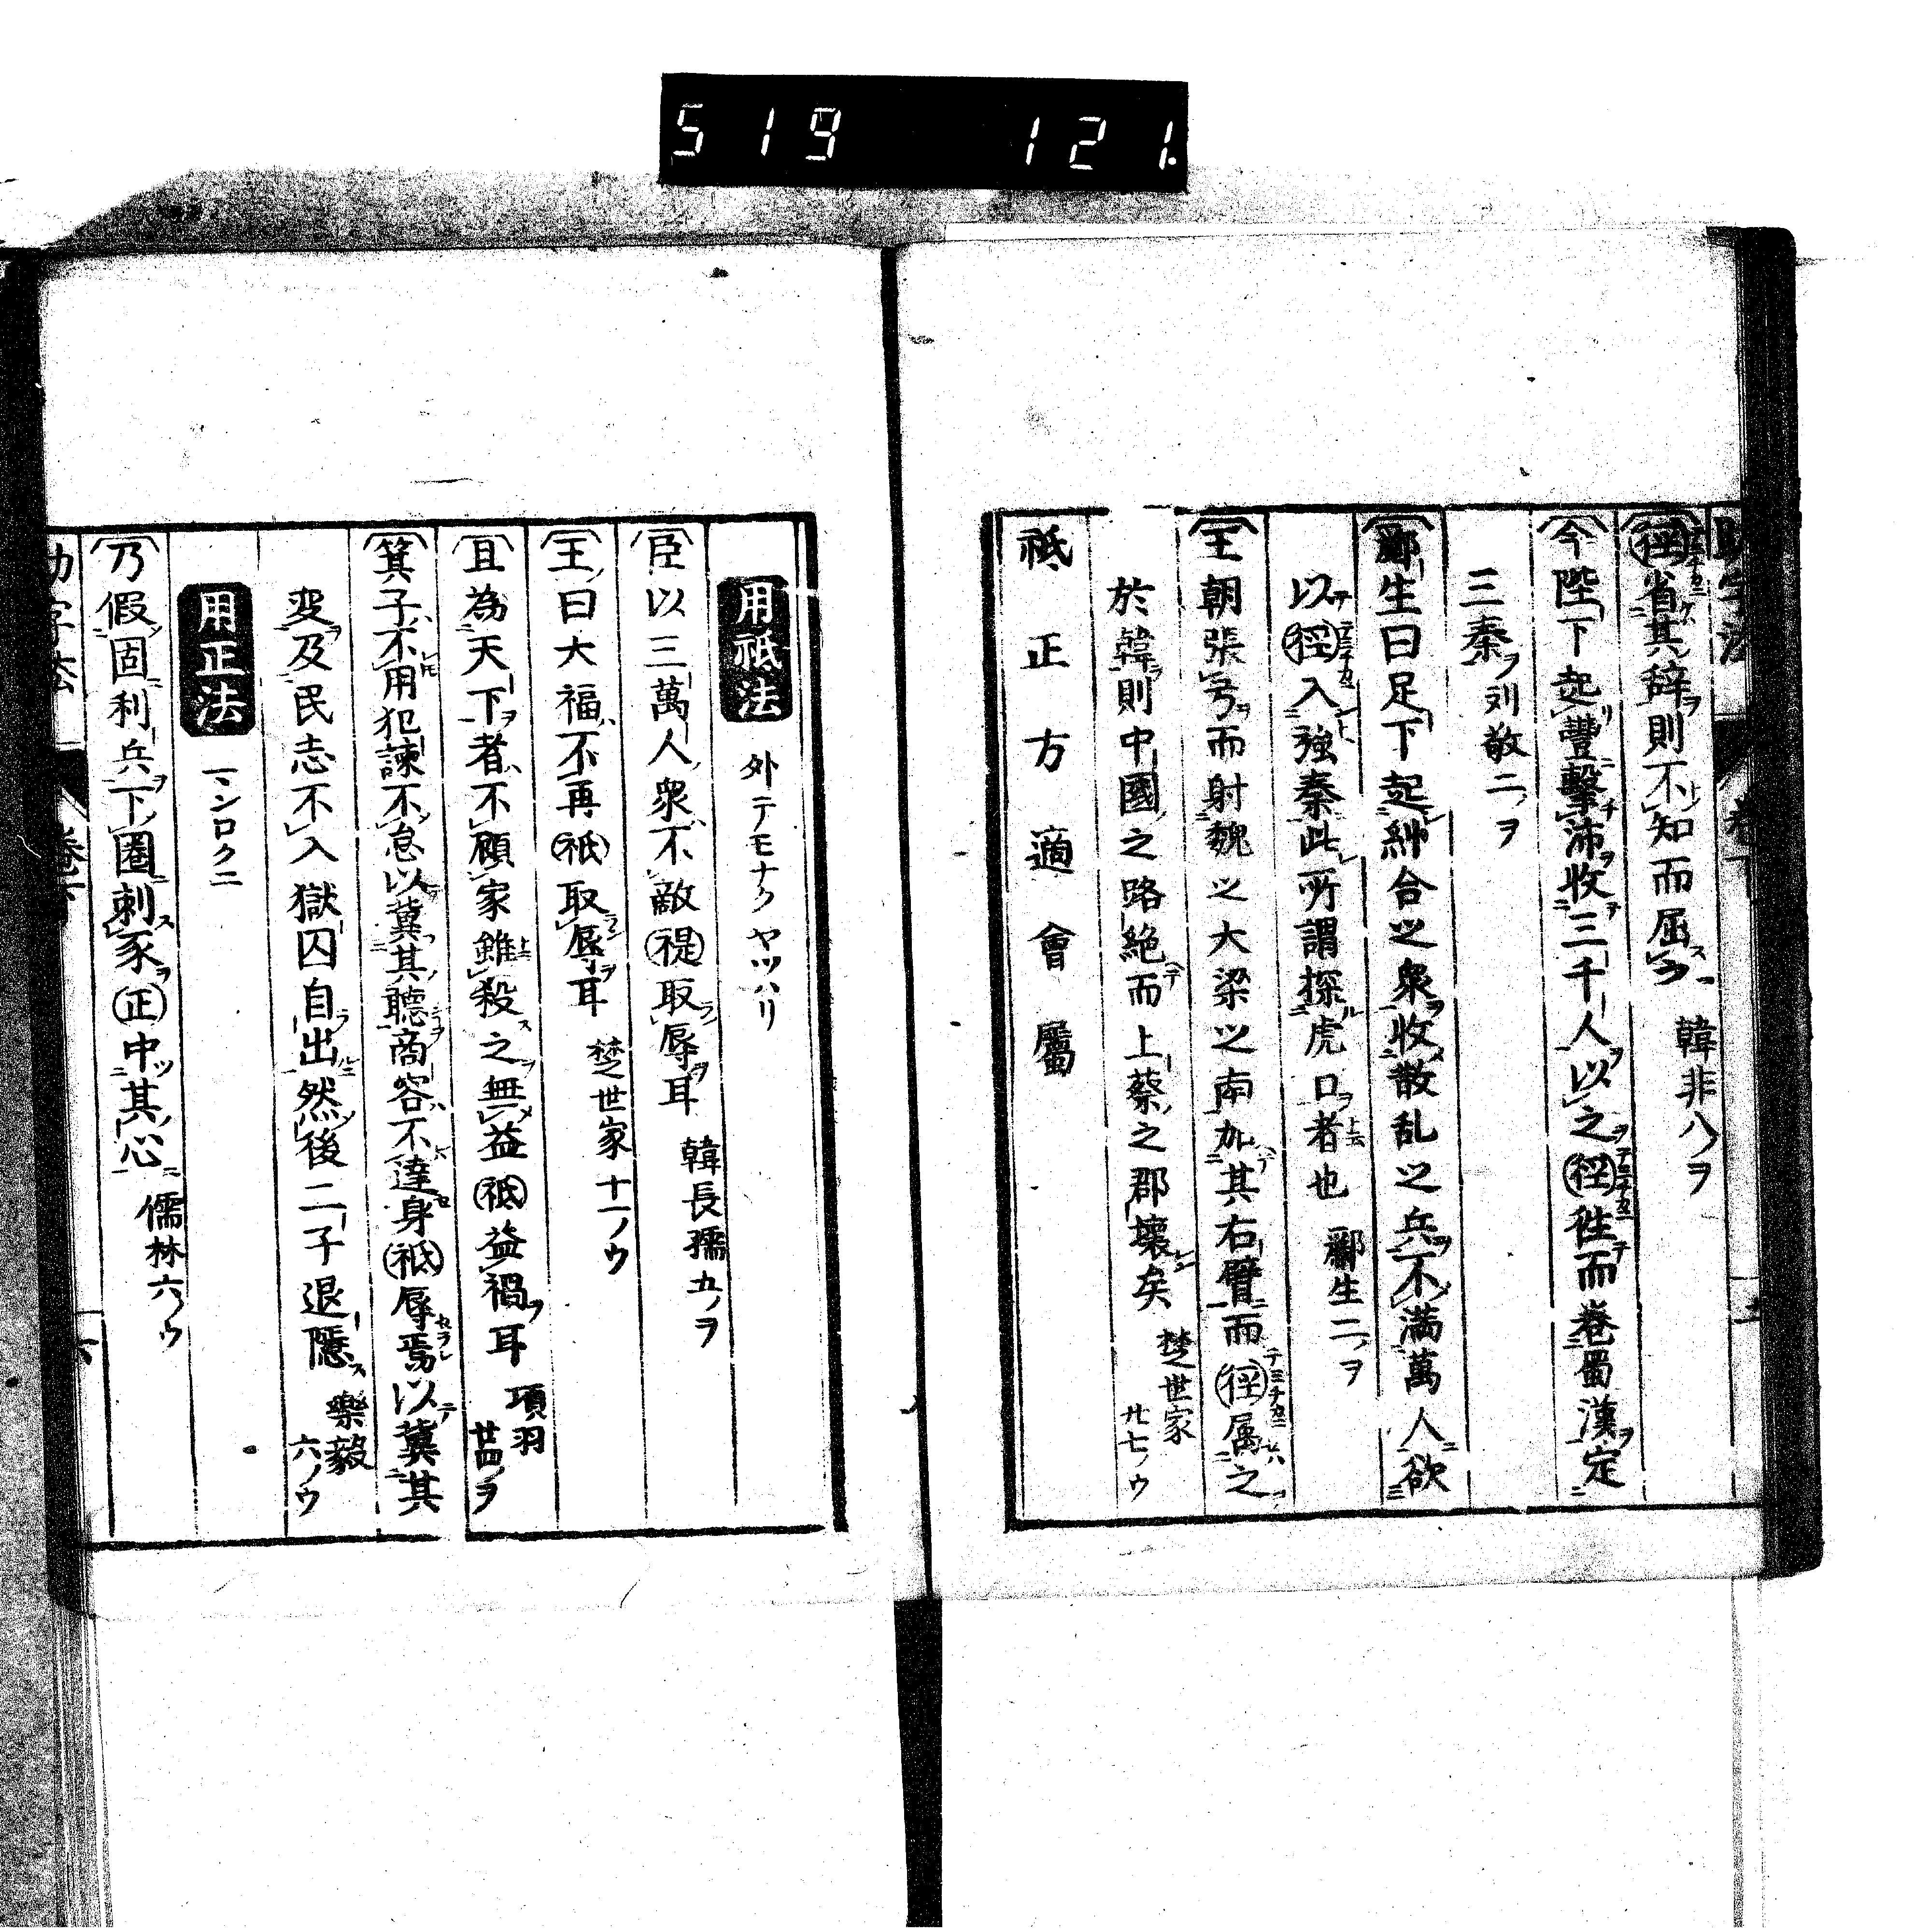 519 121
徑省其辭則不知而屈 韓非八ノヲ
今陛下起豐擊沛收三千人以之徑往而卷蜀漢定
三秦 刘敬二ノヲ
酈生曰足下起糾合之衆收散乱之兵不滿萬人欲
以徑入強秦此所謂探虎口者也 酈生二ノヲ
王朝張弓而射魏之大梁之南加其右臂而徑属之
於韓則中國之路絕而上蔡之郡壞矣 楚世家 廿七ノウ
祗正方適會屬
用祗法 外テモナクヤツハリ
臣以三萬人衆不敵禔取辱耳 韓長孺五ノヲ
王曰大福不再祗取辱耳 楚世家十一ノウ
且為天下者不顧家雖殺之無益祗益禍耳 項羽 廿四ノヲ
箕子不用犯諫不怠以冀其聽商容不達身祗辱焉以冀其
変及民志不入獄囚自出然後二子退隱 樂毅 六ノウ
用正法 マンロクニ
乃假固利兵下圈刺豕正中其心 儒林六ノウ